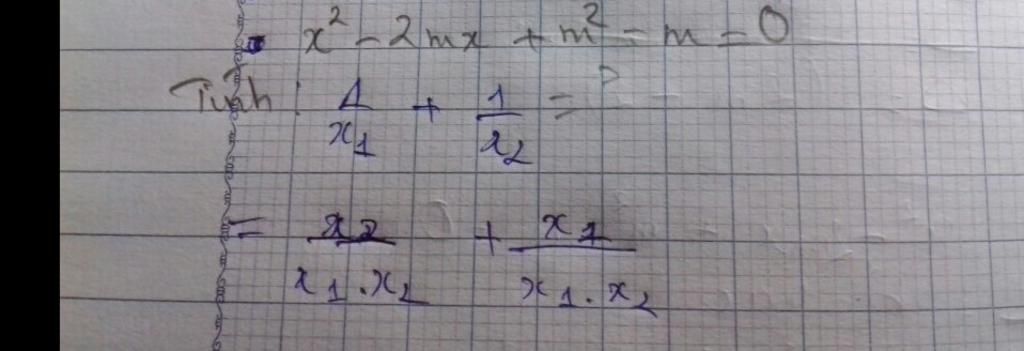 x² - 2mx + m² - m = 0
Tính : 1/x₁ + 1/x₂ = ?
= x₂/(x₁.x₂) + x₁/(x₁.x₂)